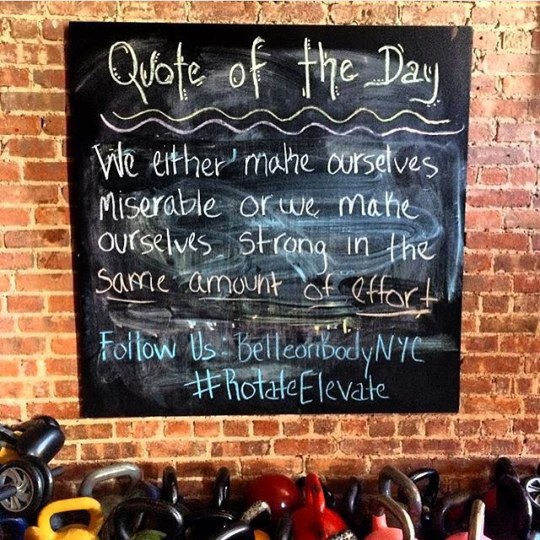 Quote of the Day
We either make ourselves
miserable or we make
ourselves strong in the
same amount of effort
Follow Us: BelleonbodyNYC
#RotateElevate